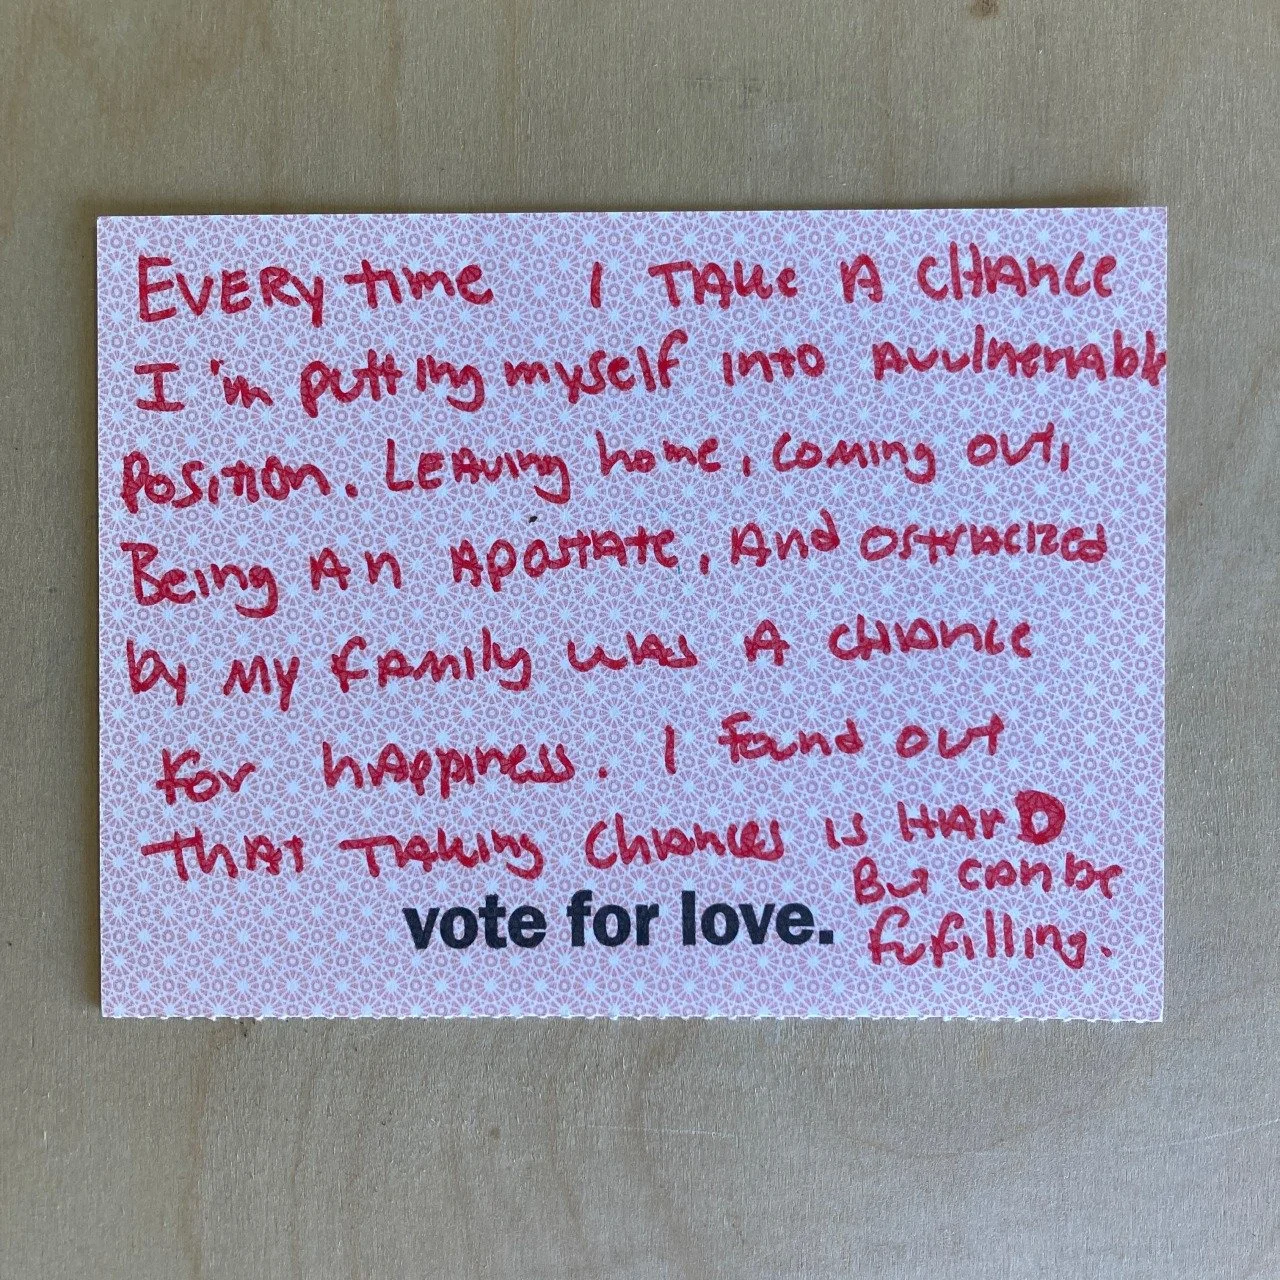 EVERY time I TAKE A CHANCE
I'm putting myself into A vulnerable
Position. LEAving home, coming out,
Being An Apostate, And ostracized
by my family was A chance
For happiness. I found out
that taking chances is HARD
But can be
vote for love. fufilling.